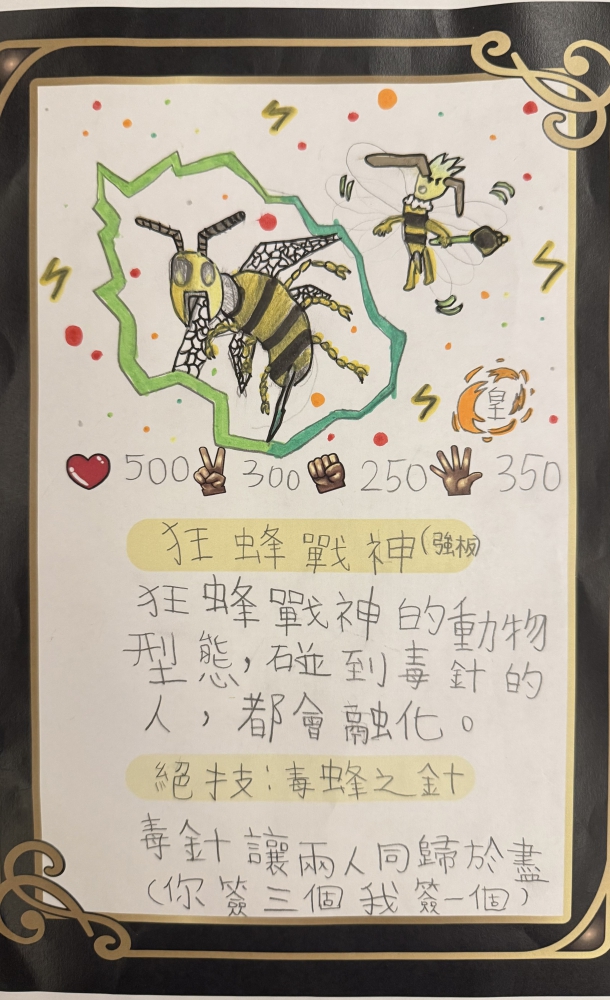 皇
500 300 250 350
狂蜂戰神(強板)
狂蜂戰神的動物
型態,碰到毒針的
人,都會融化。
絕技:毒蜂之針
毒針讓兩人同歸於盡
(你簽三個我簽一個)